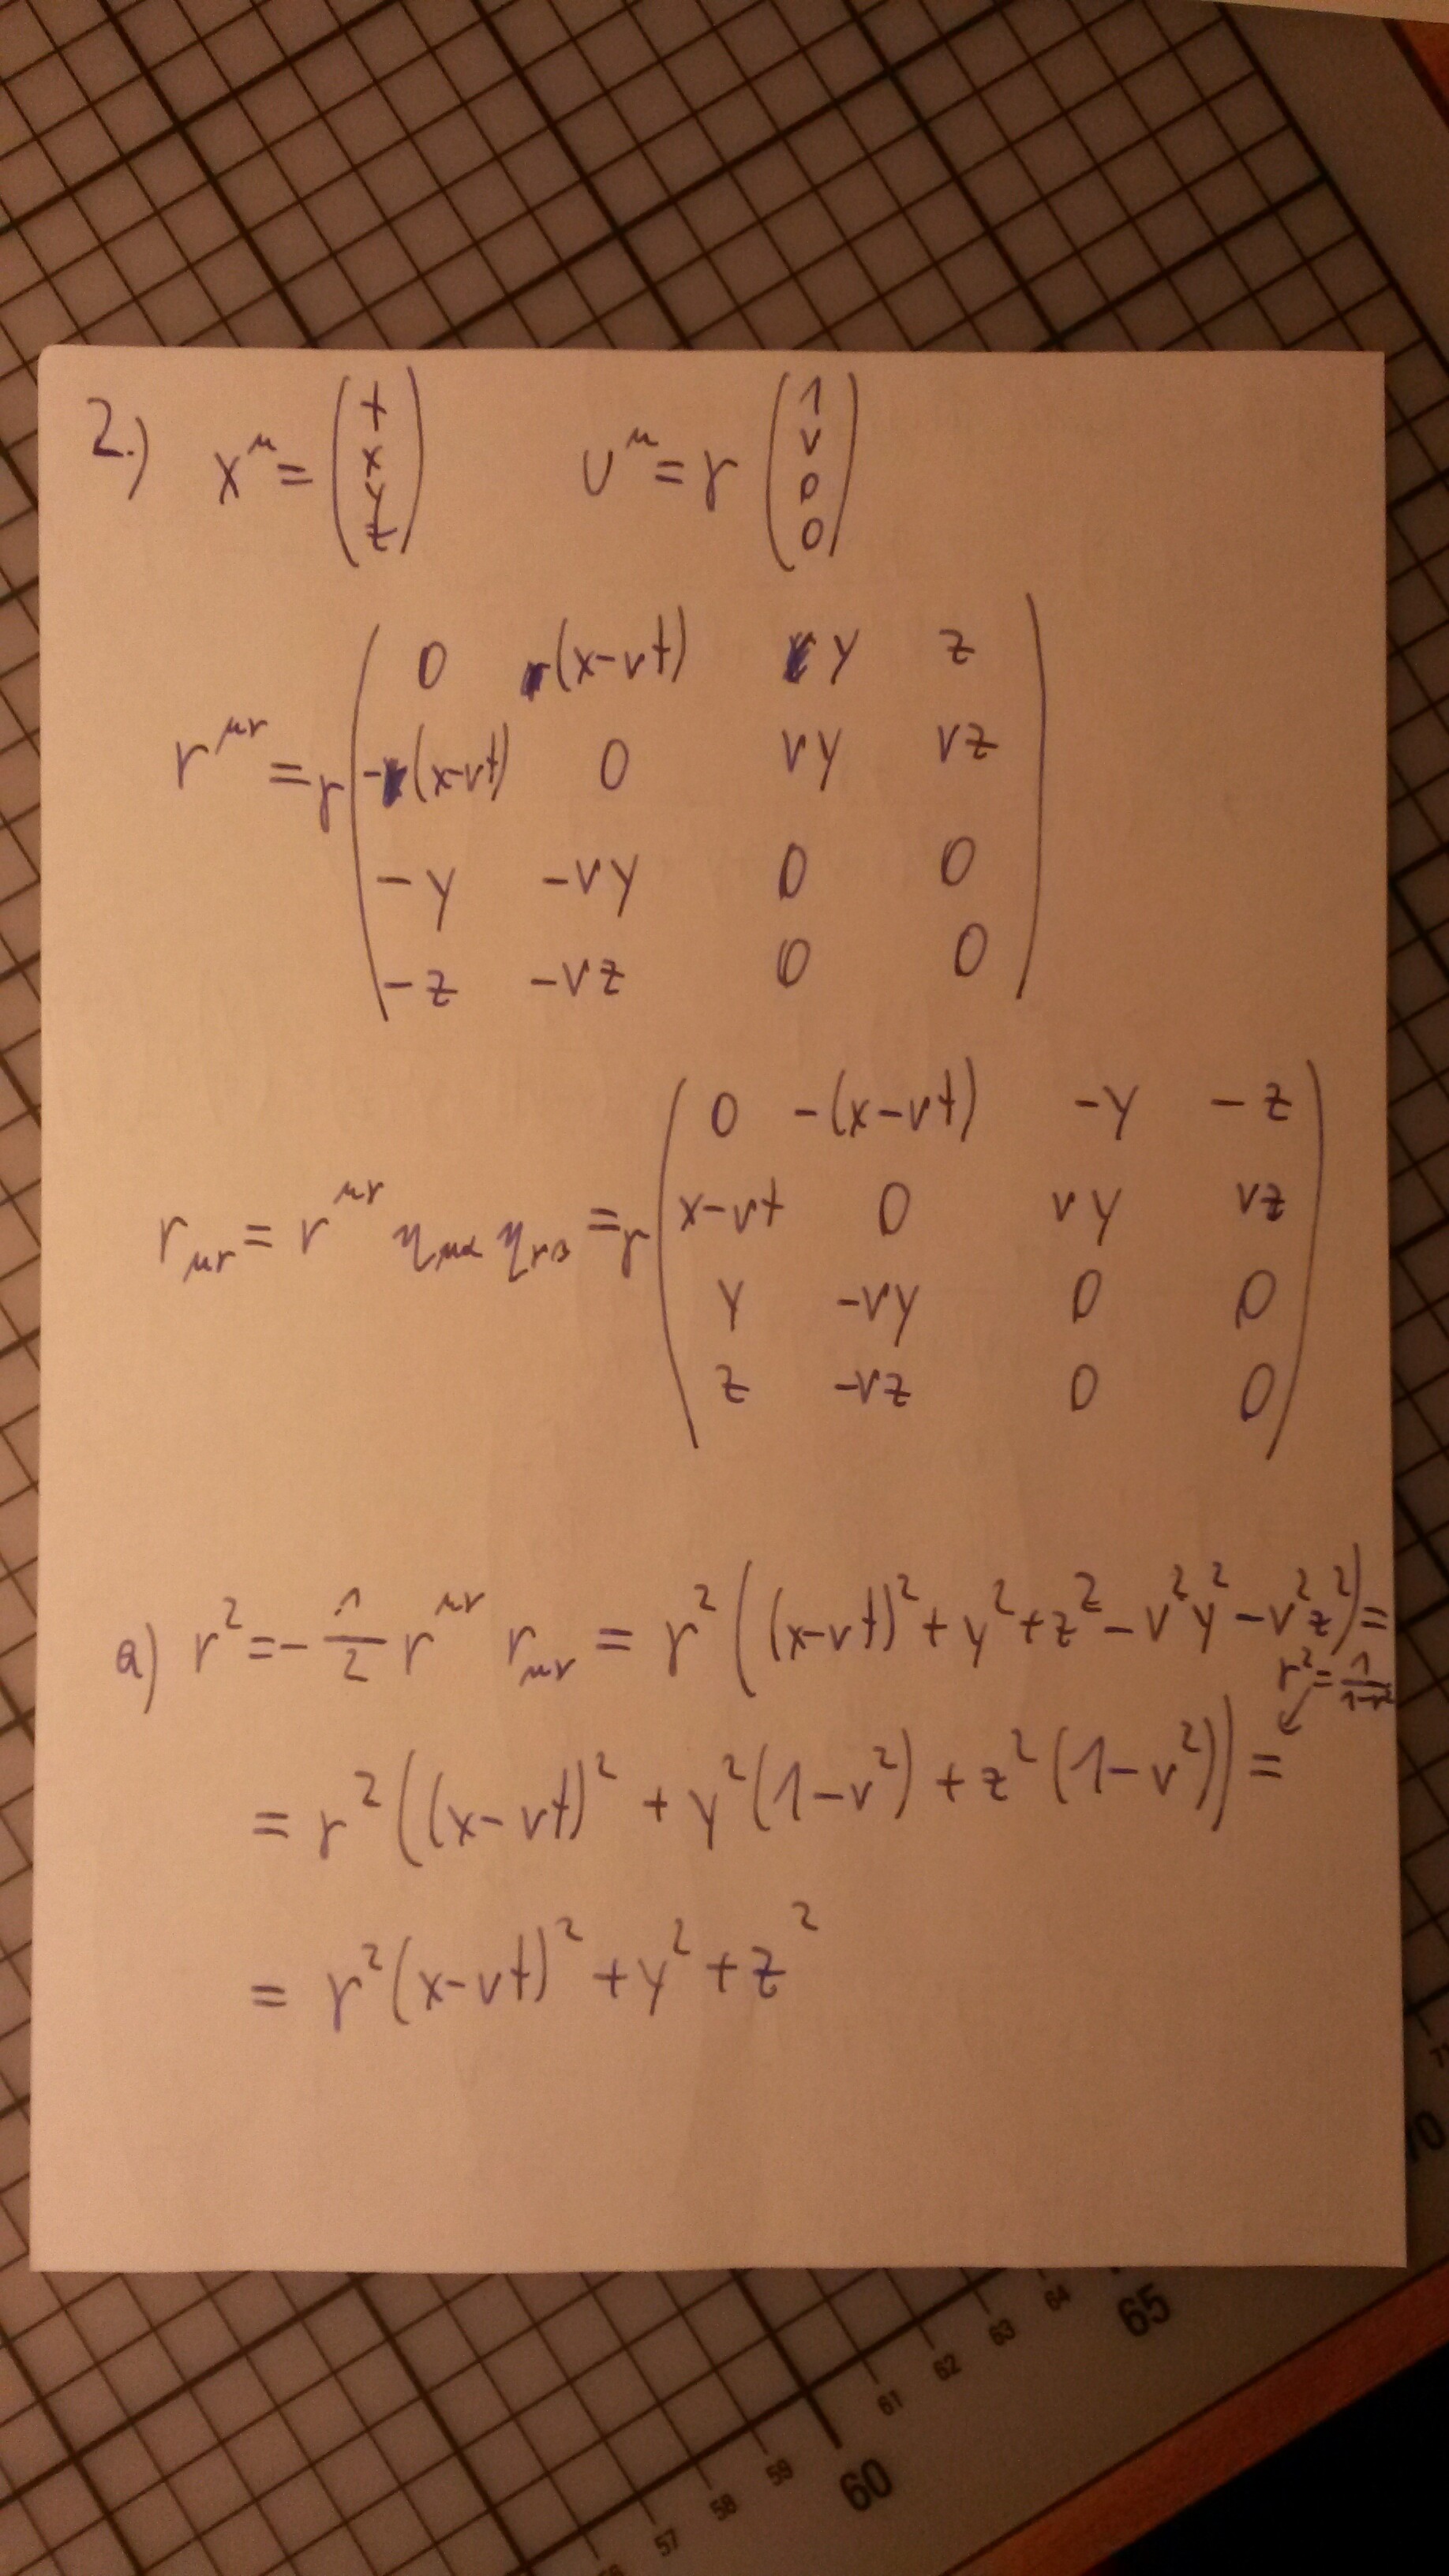 2.) x^μ = (t x y z) U^μ = γ (1 v 0 0)
r^{μν} = γ ( 0 (x-vt) y z
-(x-vt) 0 vy vz
-y -vy 0 0
-z -vz 0 0 )
r_{μν} = r^{μν} η_{μα} η_{νβ} = γ ( 0 -(x-vt) -y -z
x-vt 0 vy vz
y -vy 0 0
z -vz 0 0 )
a) r² = - 1/2 r^{μν} r_{μν} = γ² ((x-vt)² + y² + z² - v²y² - v²z²) =
γ² = 1/(1-v²)
= γ² ((x-vt)² + y²(1-v²) + z²(1-v²)) =
= γ² (x-vt)² + y² + z²
57 58 59 60 61 62 63 64 65